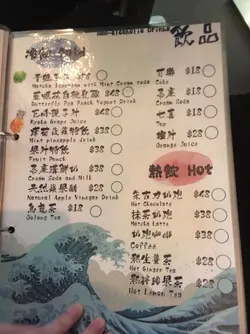 Non-alcoholic Drinks
飲品
Cold
$48
Matcha Ice-cream with Mint Cream soda
$48
Butterfly Pea Peach Yogurt Drink
$48
Kyoho Grape Juice
$38
Mint pineapple drink
果汁特飲 $38
Fruit Punch
$38
Cream Soda and Milk
天然蘋果醋 $28
Natural Apple Vinegar Drink
烏龍茶 $18
Oolong Tea
可樂 $18
Coke
忌廉 $18
Cream Soda
七喜 $18
7up
橙汁 $28
Orange Juice
熱飲 Hot
朱古力奶泡 $48
Hot Chocolaty
抹茶奶泡 $38
Matcha Latte
咖啡奶泡 $38
Coffee
熱生薑茶 $28
Hot Ginger Tea
熱檸檬果茶 $28
Hot Lemon Tea